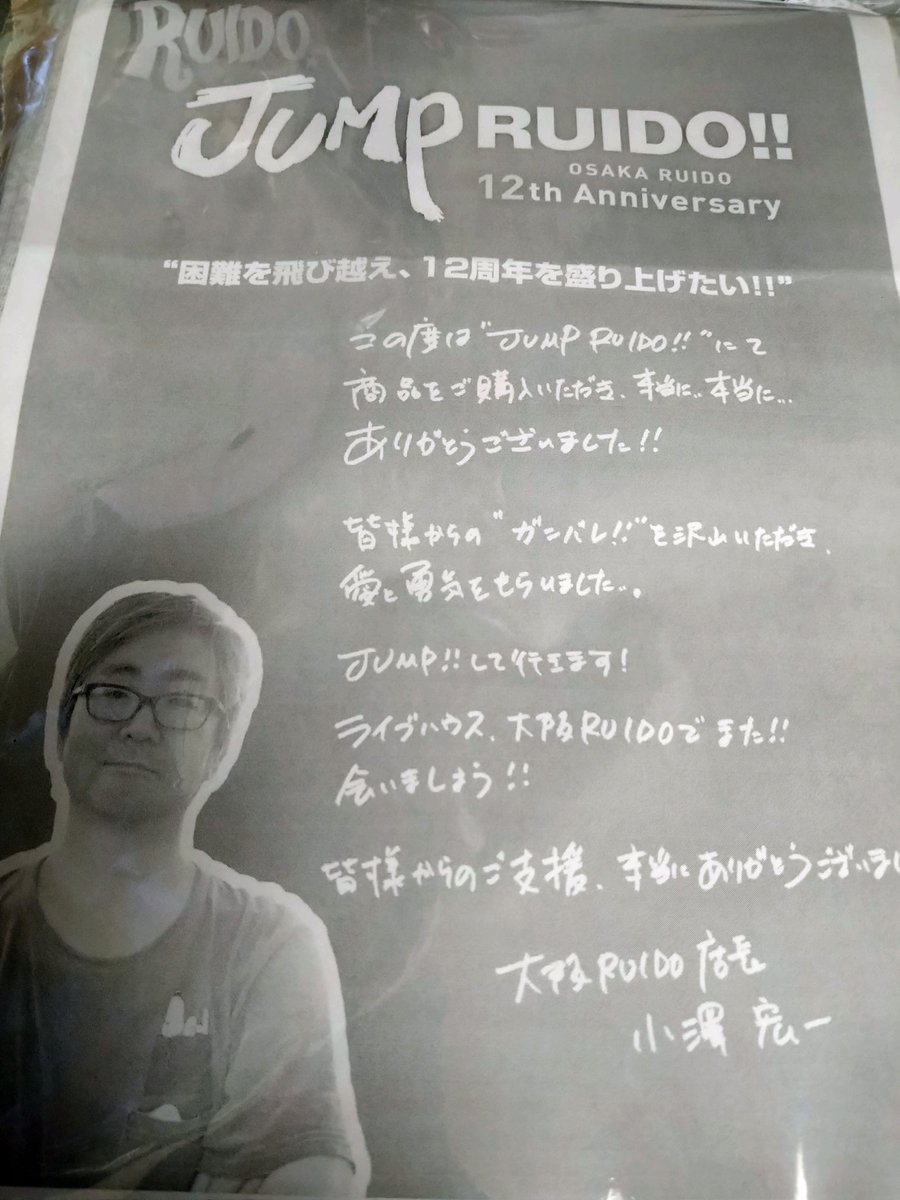 RUIDO
JUMP RUIDO!!
OSAKA RUIDO
12th Anniversary
“困難を飛び越え、12周年を盛り上げたい!!”
この度は“JUMP RUIDO!!”にて
商品をご購入いただき、本当に…本当に…
ありがとうございました!!
皆様からの“ガンバレ!!”を沢山いただき、
愛と勇気をもらいました…。
JUMP!!して行きます!
ライブハウス、大阪RUIDOでまた!!
会いましょう!!
皆様からのご支援、本当にありがとうございまし
大阪RUIDO 店長
小澤 宏一